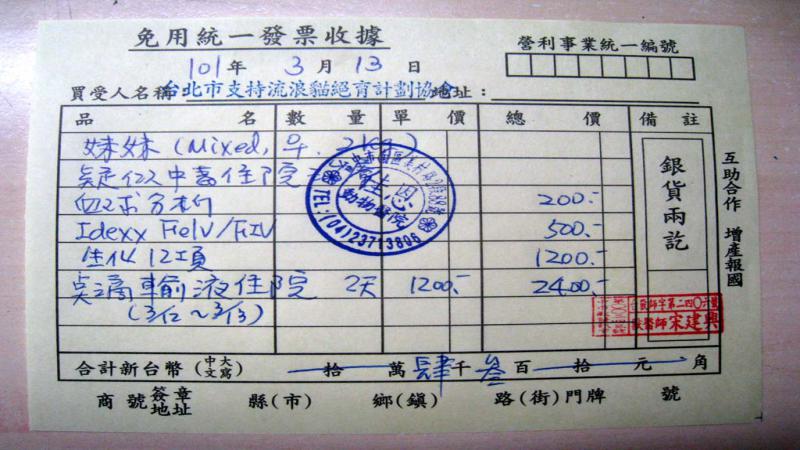 免用統一發票收據
營利事業統一編號
101年 3月 13日
買受人名稱：台北市支持流浪貓絕育計劃協會 地址：
品名 數量 單價 總價 備註
妹妹 (Mixed, ♀. 2kg)
疑似中毒住院
血球分析 200.-
Idexx FeLV/FIV 500.-
生化12項 1200.-
點滴輸液住院 2天 1200.- 2400.-
(3/12~3/13)
銀貨兩訖
互助合作 增產報國
動物醫院
TEL:(04)23713896
獸醫師 宋建興
合計新台幣(中文大寫) 拾 萬 肆 千 叁 百 拾 元 角
商號簽章地址 縣(市) 鄉(鎮) 路(街)門牌 號